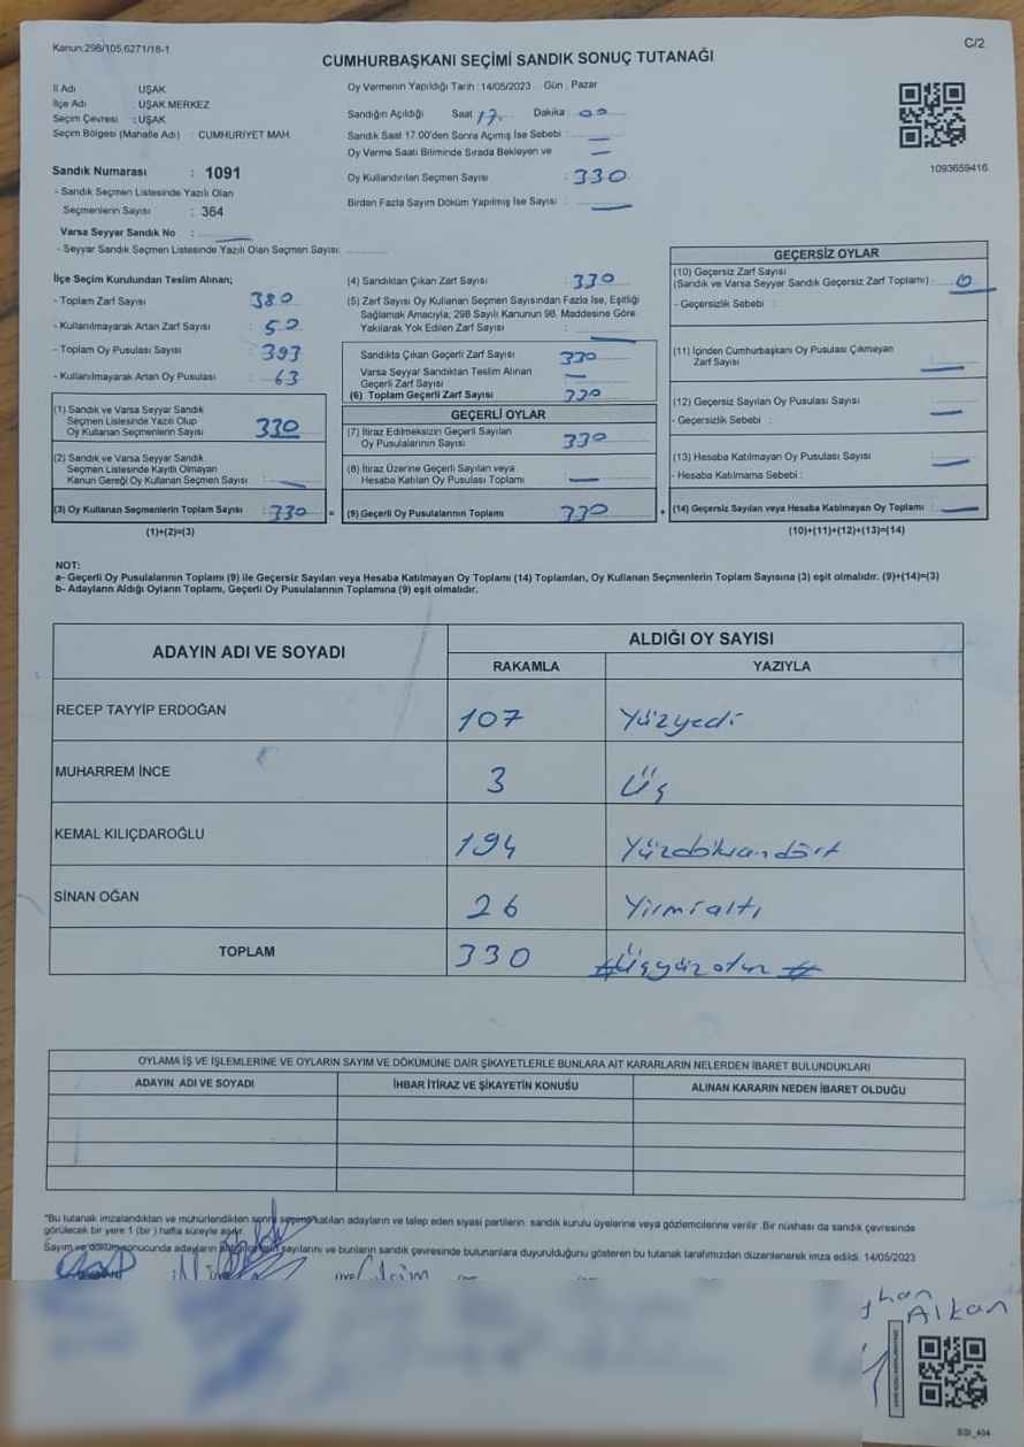 Kanun:298/105,6271/18-1
C/2
CUMHURBAŞKANI SEÇİMİ SANDIK SONUÇ TUTANAĞI
İl Adı : UŞAK
İlçe Adı : UŞAK MERKEZ
Seçim Çevresi : UŞAK
Seçim Bölgesi (Mahalle Adı) : CUMHURİYET MAH.
Sandık Numarası : 1091
- Sandık Seçmen Listesinde Yazılı Olan
Seçmenlerin Sayısı : 364
Varsa Seyyar Sandık No :
- Seyyar Sandık Seçmen Listesinde Yazılı Olan Seçmen Sayısı:
Oy Vermenin Yapıldığı Tarih : 14/05/2023 Gün : Pazar
Sandığın Açıldığı Saat 17 Dakika 00
Sandık Saat 17.00'den Sonra Açımış İse Sebebi : —
Oy Verme Saati Bitiminde Sırada Bekleyen ve —
Oy Kullandırılan Seçmen Sayısı : 330
Birden Fazla Sayım Döküm Yapılmış İse Sayısı : —
1093659416
İlçe Seçim Kurulundan Teslim Alınan;
- Toplam Zarf Sayısı : 380
- Kullanılmayarak Artan Zarf Sayısı : 50
- Toplam Oy Pusulası Sayısı : 393
- Kullanılmayarak Artan Oy Pusulası : 63
(1) Sandık ve Varsa Seyyar Sandık
Seçmen Listesinde Yazılı Olup
Oy Kullanan Seçmenlerin Sayısı : 330
(2) Sandık ve Varsa Seyyar Sandık
Seçmen Listesinde Kayıtlı Olmayan
Kanun Gereği Oy Kullanan Seçmen Sayısı : —
(3) Oy Kullanan Seçmenlerin Toplam Sayısı : 330
(1)+(2)=(3)
=
(4) Sandıktan Çıkan Zarf Sayısı : 330
(5) Zarf Sayısı Oy Kullanan Seçmen Sayısından Fazla İse, Eşitliği
Sağlamak Amacıyla; 298 Sayılı Kanunun 98. Maddesine Göre
Yakılarak Yok Edilen Zarf Sayısı : —
Sandıkta Çıkan Geçerli Zarf Sayısı : 330
Varsa Seyyar Sandıktan Teslim Alınan
Geçerli Zarf Sayısı : —
(6) Toplam Geçerli Zarf Sayısı : 330
GEÇERLİ OYLAR
(7) İtiraz Edilmeksizin Geçerli Sayılan
Oy Pusulalarının Sayısı : 330
(8) İtiraz Üzerine Geçerli Sayılan veya
Hesaba Katılan Oy Pusulası Toplamı : —
(9) Geçerli Oy Pusulalarının Toplamı : 330
+
GEÇERSİZ OYLAR
(10) Geçersiz Zarf Sayısı
(Sandık ve Varsa Seyyar Sandık Geçersiz Zarf Toplamı) : 0
- Geçersizlik Sebebi :
(11) İçinden Cumhurbaşkanı Oy Pusulası Çıkmayan
Zarf Sayısı : —
(12) Geçersiz Sayılan Oy Pusulası Sayısı : —
- Geçersizlik Sebebi :
(13) Hesaba Katılmayan Oy Pusulası Sayısı : —
- Hesaba Katılmama Sebebi :
(14) Geçersiz Sayılan veya Hesaba Katılmayan Oy Toplamı : —
(10)+(11)+(12)+(13)=(14)
NOT:
a- Geçerli Oy Pusulalarının Toplamı (9) ile Geçersiz Sayılan veya Hesaba Katılmayan Oy Toplamı (14) Toplamları, Oy Kullanan Seçmenlerin Toplam Sayısına (3) eşit olmalıdır. (9)+(14)=(3)
b- Adayların Aldığı Oyların Toplamı, Geçerli Oy Pusulalarının Toplamına (9) eşit olmalıdır.
ADAYIN ADI VE SOYADI
ALDIĞI OY SAYISI
RAKAMLA YAZIYLA
RECEP TAYYİP ERDOĞAN 107 Yüzyedi
MUHARREM İNCE 3 Üç
KEMAL KILIÇDAROĞLU 194 Yüzdoksandört
SİNAN OĞAN 26 Yirmialtı
TOPLAM 330 #Üçyüzotuz#
OYLAMA İŞ VE İŞLEMLERİNE VE OYLARIN SAYIM VE DÖKÜMÜNE DAİR ŞİKAYETLERLE BUNLARA AİT KARARLARIN NELERDEN İBARET BULUNDUKLARI
ADAYIN ADI VE SOYADI İHBAR İTİRAZ VE ŞİKAYETİN KONUSU ALINAN KARARIN NEDEN İBARET OLDUĞU
"Bu tutanak imzalandıktan ve mühürlendikten sonra seçime katılan adayların ve talep eden siyasi partilerin sandık kurulu üyelerine veya gözlemcilerine verilir. Bir nüshası da sandık çevresinde
görülecek bir yere 1 (bir) hafta süreyle asılır.
Sayım ve döküm sonucunda adayların sayılarını ve bunların sandık çevresinde bulunanlara duyurulduğunu gösteren bu tutanak tarafımızdan düzenlenerek imza edildi. 14/05/2023
Alkan